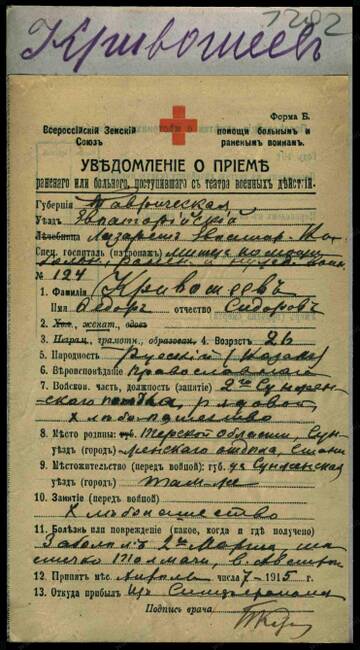 1282
Кривошеевъ
Форма Б.
Всероссійскій Земскій Союзъ
помощи больнымъ и раненымъ воинамъ.
УВѢДОМЛЕНІЕ О ПРІЕМѢ
раненаго или больного, поступившаго съ театра военныхъ дѣйствій.
Губернія Таврическая
Уѣздъ Евпаторійскій
Лечебница Лазаретъ Евпатор.
Спец. госпиталь (патронаж.)
№ 124
1. Фамилія Кривошеевъ
Имя Ѳедоръ отчество Сидоровъ
2. Хол., женат., вдовъ
3. Неграм., грамотн., образован. 4. Возрастъ 26
5. Народность Русскій (Казакъ)
6. Вѣроисповѣданіе Православнаго
7. Войсков. часть, должность (занятіе) 2го Сунжен-
скаго полка, рядовой,
хлѣбопашество
8. Мѣсто родины: губ. Терской Области, Сун-
уѣздъ (городъ) женскаго отдѣла,
9. Мѣстожительство (передъ войной): губ. Сунженская
уѣздъ (городъ) тамъ-же
10. Занятіе (передъ войной)
Хлѣбопашество
11. Болѣзнь или поврежденіе (какое, когда и гдѣ получено)
Заболѣлъ 2го Марта, мѣ-
стечко Толмачи, въ Австріи
12. Принятъ мѣс. Апрѣль числа 7-1915 г.
13. Откуда прибылъ Изъ Симферополя
Подпись врача